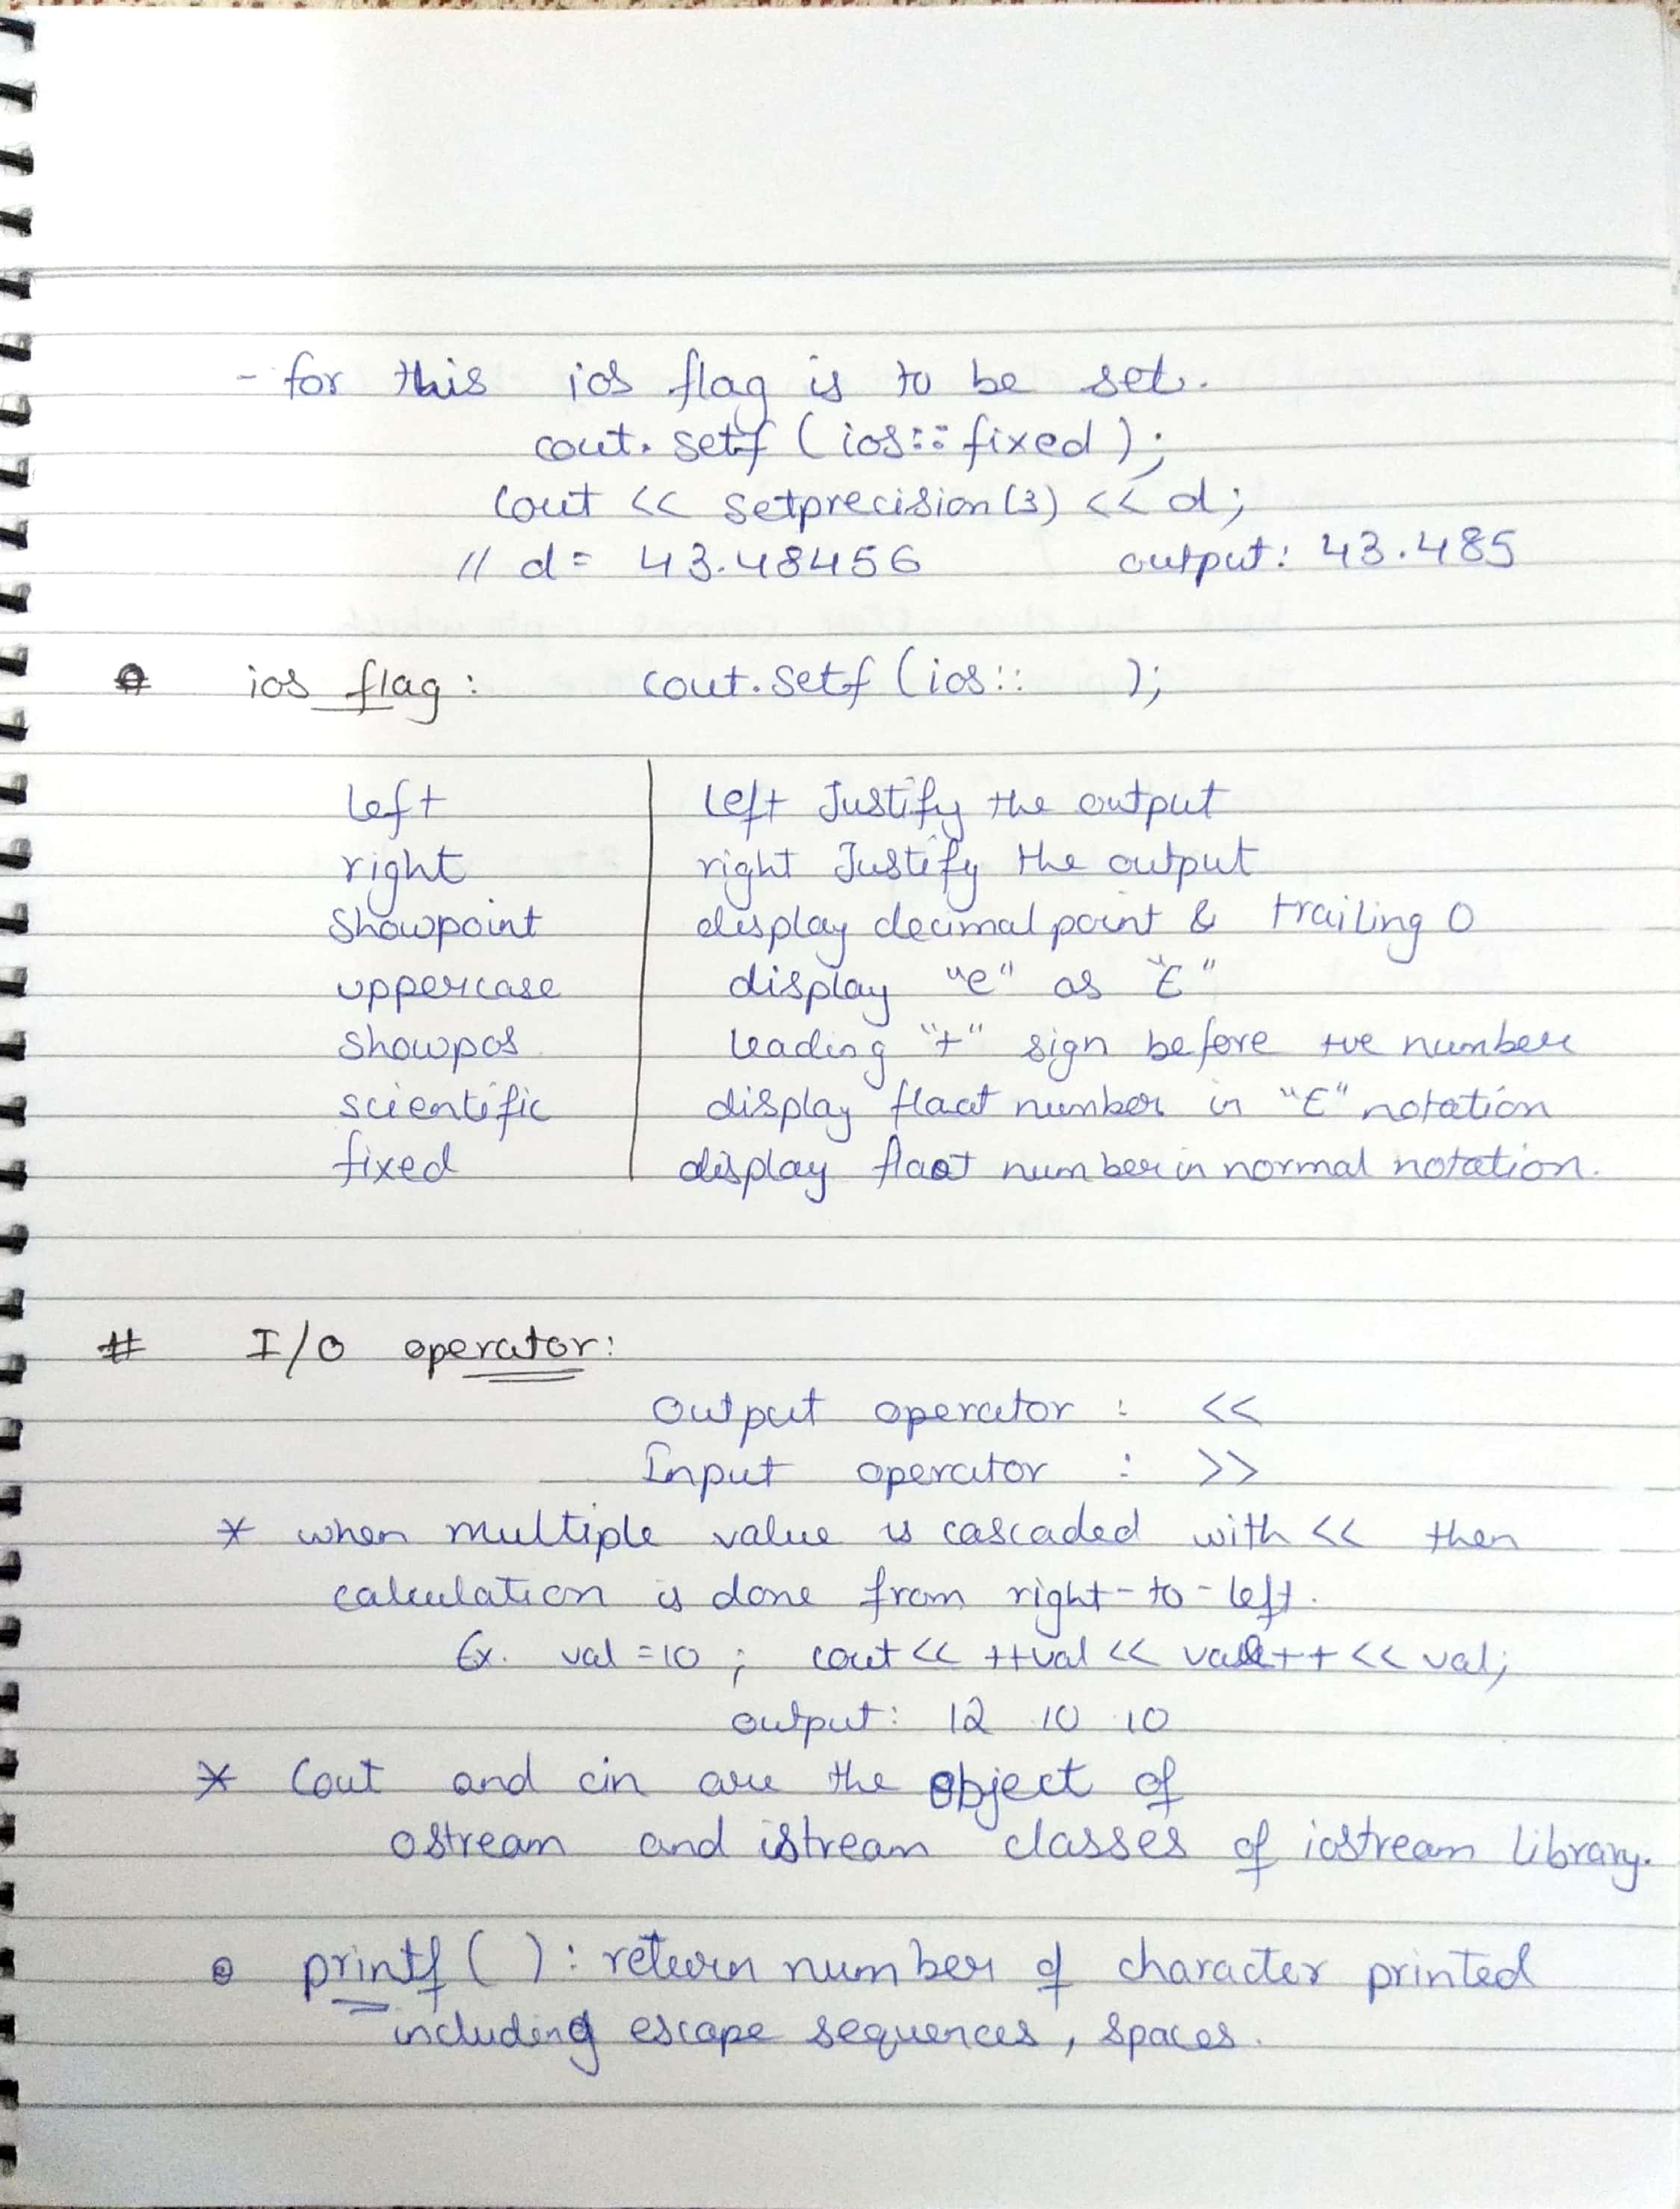 - for this ios flag is to be set.
cout. setf (ios::fixed);
cout << setprecision(3) << d;
// d = 43.48456 output: 43.485
ios flag: cout.setf (ios:: );
left left Justify the output
right right Justify the output
showpoint display decimal point & trailing 0
uppercase display "e" as "E"
showpos leading "+" sign before +ve number
scientific display float number in "E" notation
fixed display float number in normal notation.
# I/O operator:
Output operator : <<
Input operator : >>
* when multiple value is cascaded with << then
calculation is done from right-to-left.
Ex. val = 10 ; cout << ++val << val++ << val;
output: 12 10 10
* Cout and cin are the object of
ostream and istream classes of iostream library.
• printf ( ) : return number of character printed
including escape sequences, spaces.